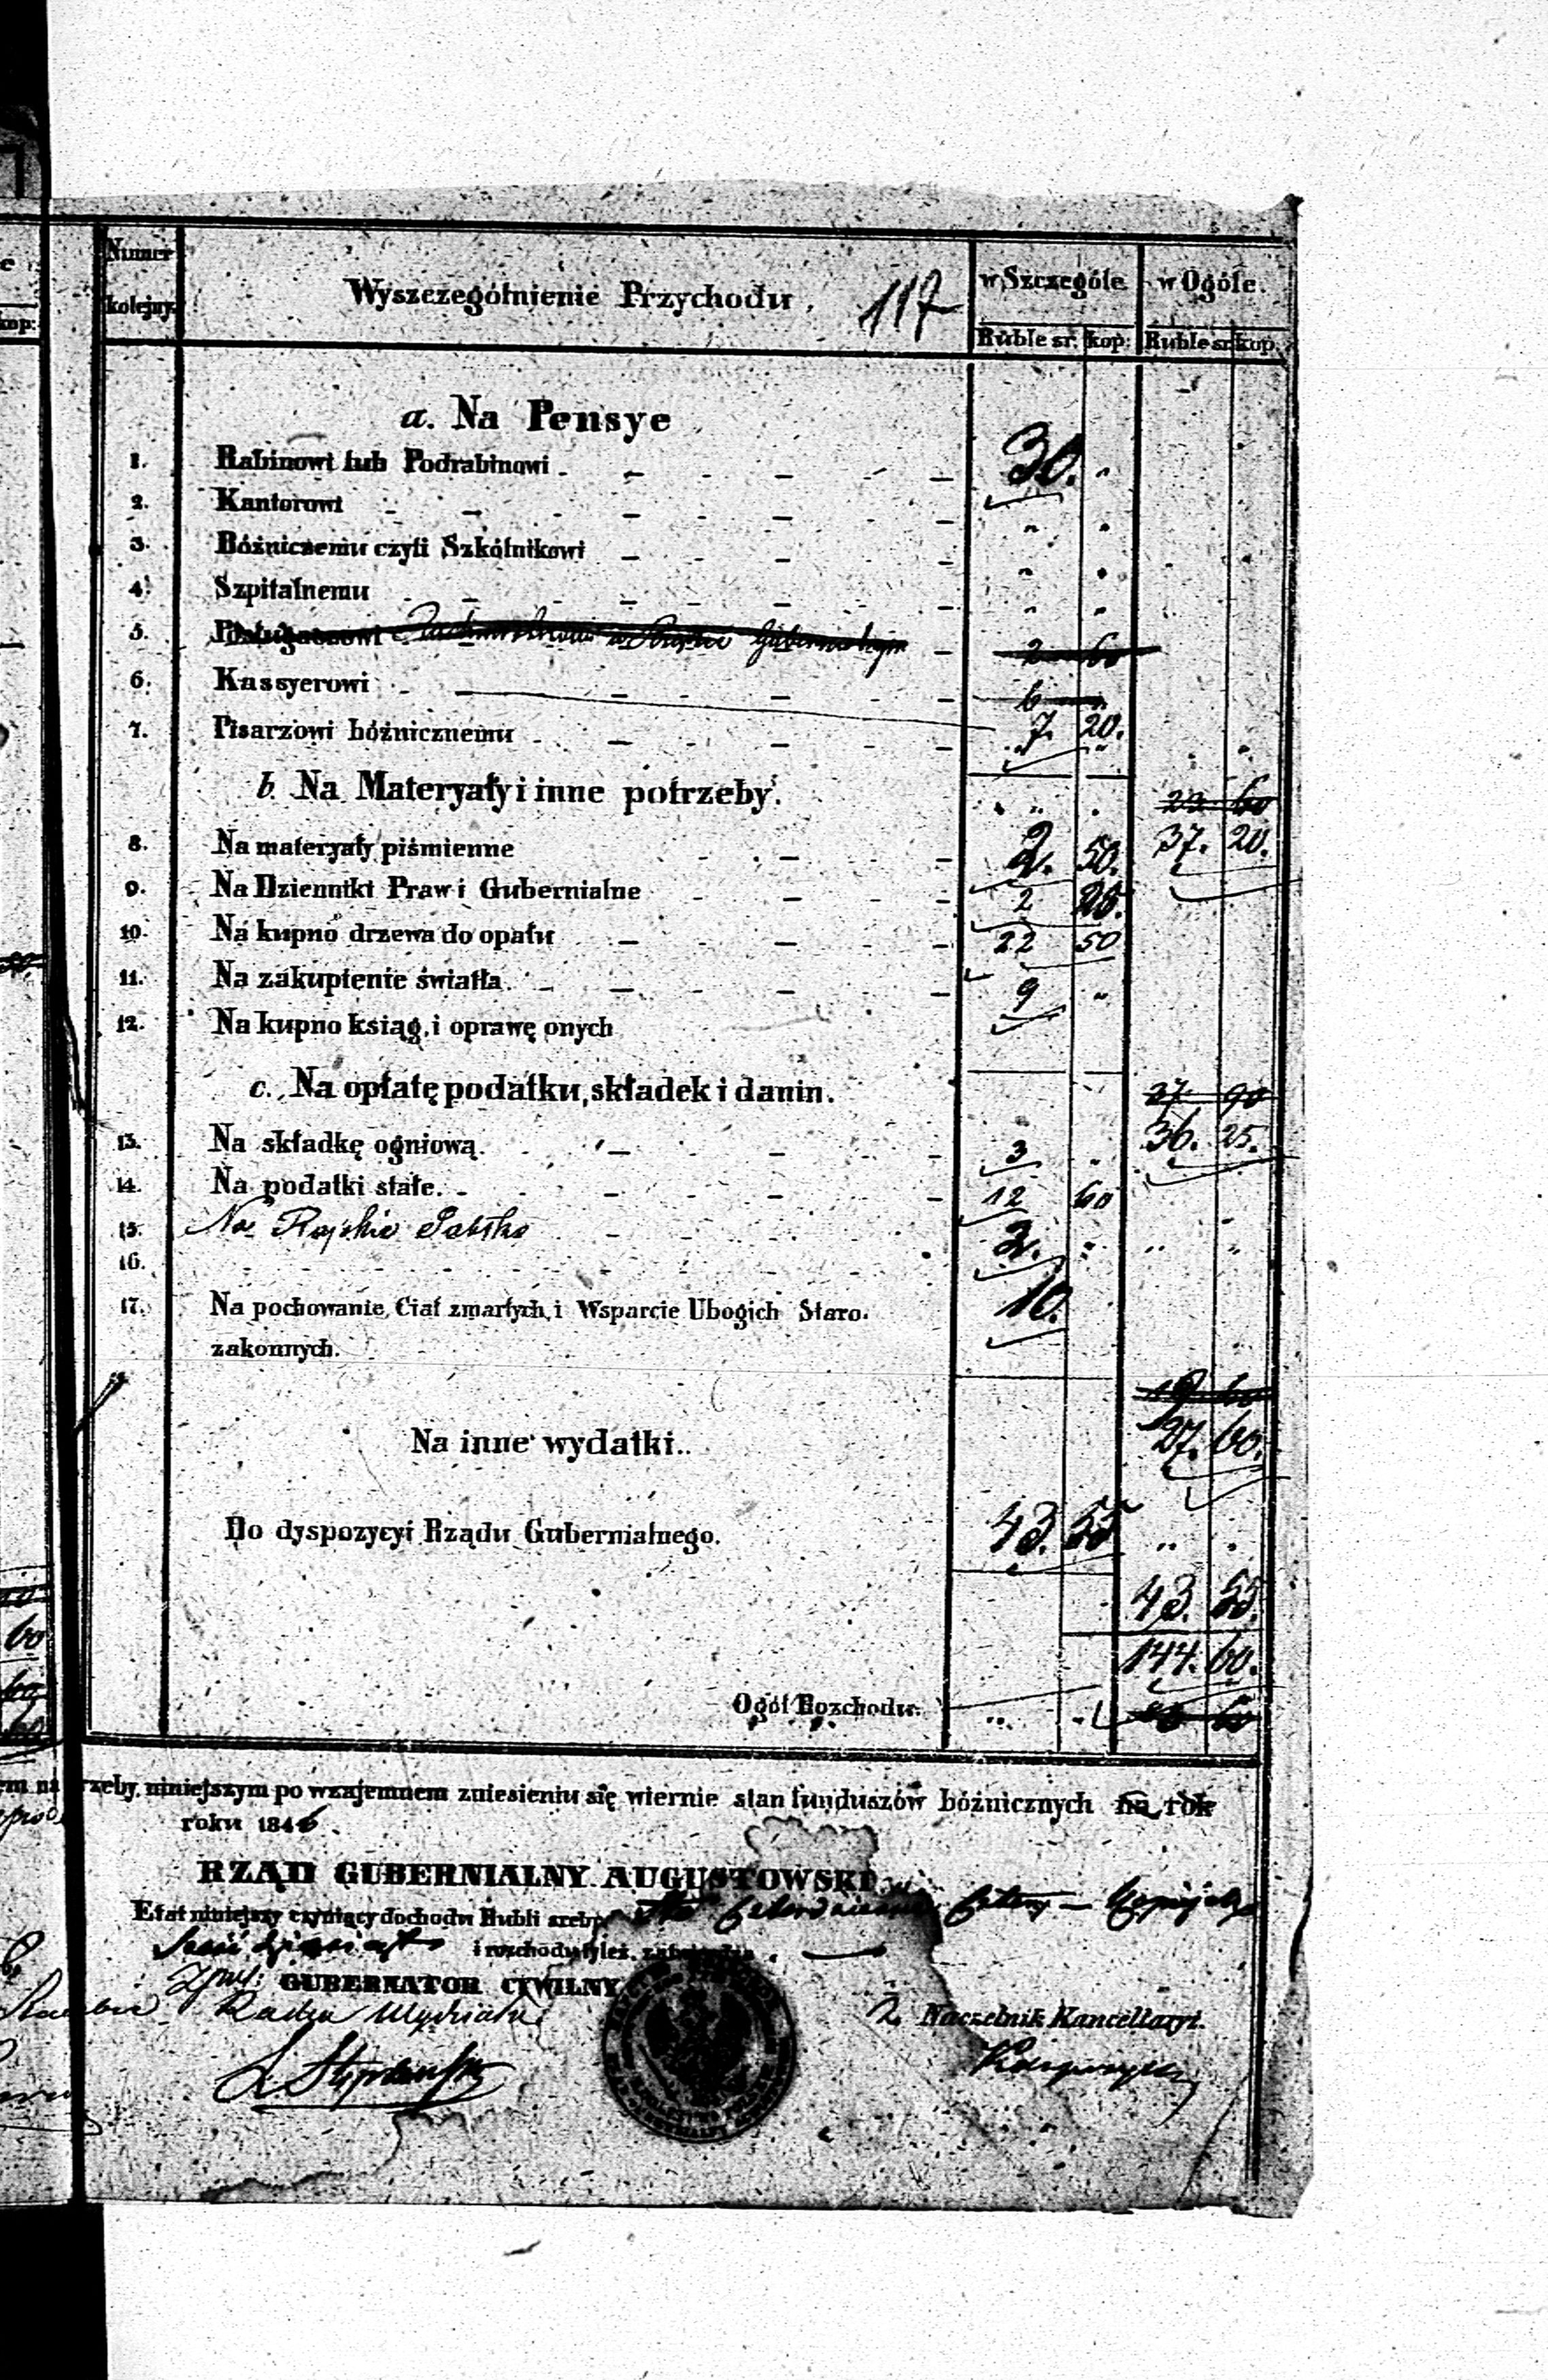 Numer kolejny.
Wyszczególnienie Przychodu. 117
w Szczególe w Ogóle.
Ruble sr. kop: Ruble sr. kop.
kop:
a. Na Pensye
1. Rabinowi lub Podrabinowi 30.
2. Kantorowi
3. Bóżniczemu czyli Szkólnikowi
4. Szpitalnemu
5. Posługaczowi 2 60
6. Kassyerowi 6
7. Pisarzowi bóżnicznemu 7. 20.
b. Na Materyały i inne potrzeby. 23 60
37. 20.
8. Na materyały piśmienne 2. 50.
9. Na Dzienniki Praw i Gubernialne 2 25.
10. Na kupno drzewa do opału 22 50
11. Na zakupienie światła 9 "
12. Na kupno ksiąg i oprawę onych
c. Na opłatę podatku, składek i danin. 27 90
36. 25.
13. Na składkę ogniową. 3
14. Na podatki stałe. 12 60
15. Na 2.
16.
17. Na pochowanie Ciał zmarłych, i Wsparcie Ubogich Staro- 10.
zakonnych.
27. 60.
Na inne wydatki..
Do dyspozycyi Rządu Gubernialnego. 43. 55
43. 55.
144. 60.
Ogół Rozchodu.
rzeby niniejszym po wzajemnem zniesieniu się wiernie stan funduszów bóżnicznych na rok
roku 1846.
RZĄD GUBERNIALNY AUGUSTOWSKI.
Etat niniejszy czyniący dochodu Rubli srebr Sto Czterdzieści Cztery — Kopiejek
Sześćdziesiąt i rozchodu tyleż, zatwierdza.
GUBERNATOR CYWILNY
Radca Wydziału
Naczelnik Kancellaryi.